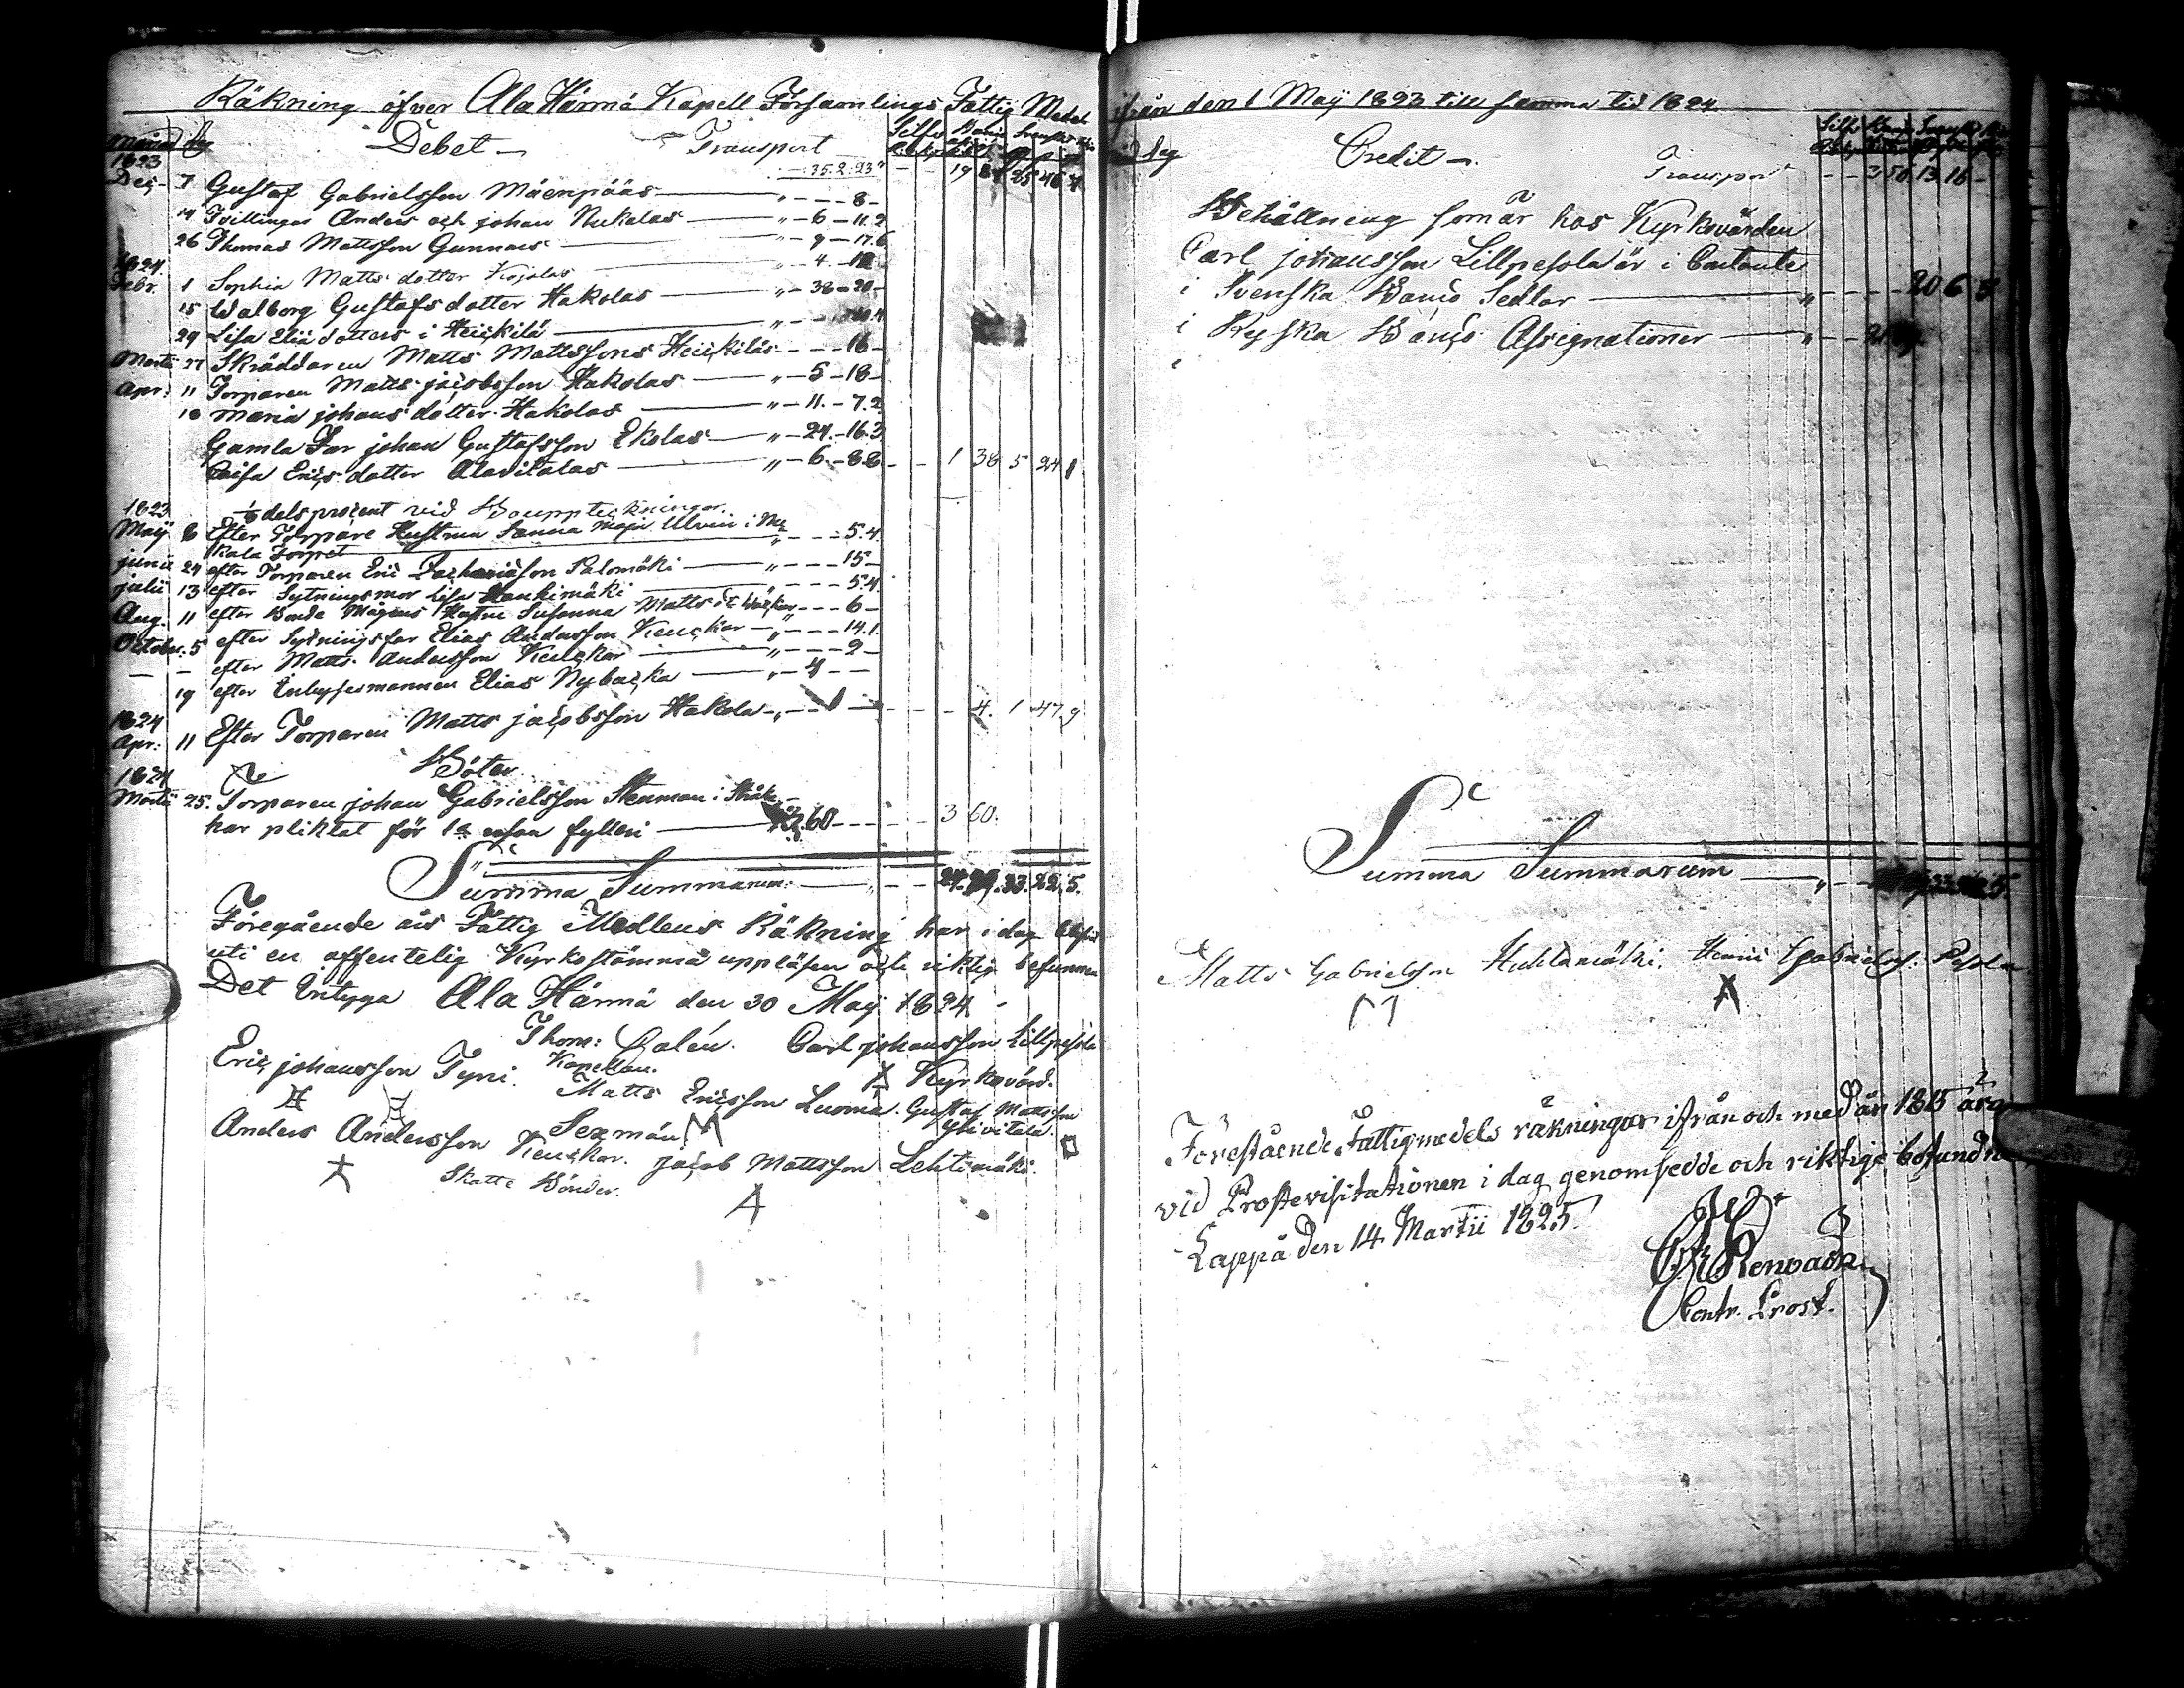 Räkning öfver Ala Härmä Kapell Församlings Fattig Medel
Debet Transport
1823 35. 2. 23 19 85 46
Dec. 7 Gustaf Gabrielsson Mäenpääs 8
14 Tvillingar Anders och johan Nukalas 6 11.2
26 Thomas Mattsson Gunnars 9 17.6
1824
Febr. 1 Sophia Matts dotter Kojolas 4
15 Walborg Gustafs dotter Hakolas 38 20
29 Lisa Eliä dotters i Heickilä
Martii Skräddaren Matts Mattssons Heickiläs 16
Apr: 11 Torparen Matts jacobsson Hakolas 5 18
18 Maria johans dotter Hakolas 11. 7.2
Gamla Far johan Gustafsson Ekolas 24. 16.3
Caisa Erics dotter Alavitalas 6. 8.8 1 38 5 24 1
1823 1/8 dels procent vid Bouppteckningar.
Maij 8 Efter Torpare Hustrun Sanna Maja i
kala Torpet 5.4
junii 24 efter Torparen Eric Zachariasson Palomäki 15
julii 13 efter Sytningsmor Lisa Haukimäki 5.4
Aug. 11 efter Bonde Mågens Hustru Susanna Matts dr 6
October. 5 efter Sytningsfar Elias Andersson Keuckar 14.1
efter Matts Andersson Keuckar 2
19 efter Inhysesmannen Elias Nybacka 4
1824
Apr: 11 Efter Torparen Matts jacobsson Hakola 4. 1 47. 9
Böter.
1824
Martii 25. Torparen johan Gabrielsson Stenman i
har pliktat för 1a resan fylleri 3 60 3 60.
Summa Summarum 33. 22. 5.
Föregående års Fattig Medlens Räkning har i dag blifvit
uti en offentelig Kyrkostämma uppläsen och riktig befunnen
Det intyga Ala Härmä den 30 Maij 1824
Thom: Dalén. Carl johansson Lillpesola
Kapellan. Kyrkovärd.
Eric johansson Tyni. Matts Ericsson Luoma. Gustaf Mattsson
Sexmän Ylivitala.
Anders Andersson Keuckar. jacob Mattsson Lehtimäki.
Skatte Bönder.
ifrån den 1 Maij 1823 till samma tid 1824
Dag Credit
Transport 2 50. 13. 16
Behållning som är hos Kyrkovärden
Carl johansson Lillpesola är i Contante
i Svenska Banco Sedlar 20 6
i Ryska Banco Assignationer
Summa Summarum
Matts Gabrielsson Huhtamäki. Henric Gabrielss: Pesola
Förestående Fattigmedels räkningar ifrån och med år 1815 äro
vid Prostevisitationen i dag genomsedde och riktige befundne
Lappå den 14 Martii 1825.
Contr. Prost.